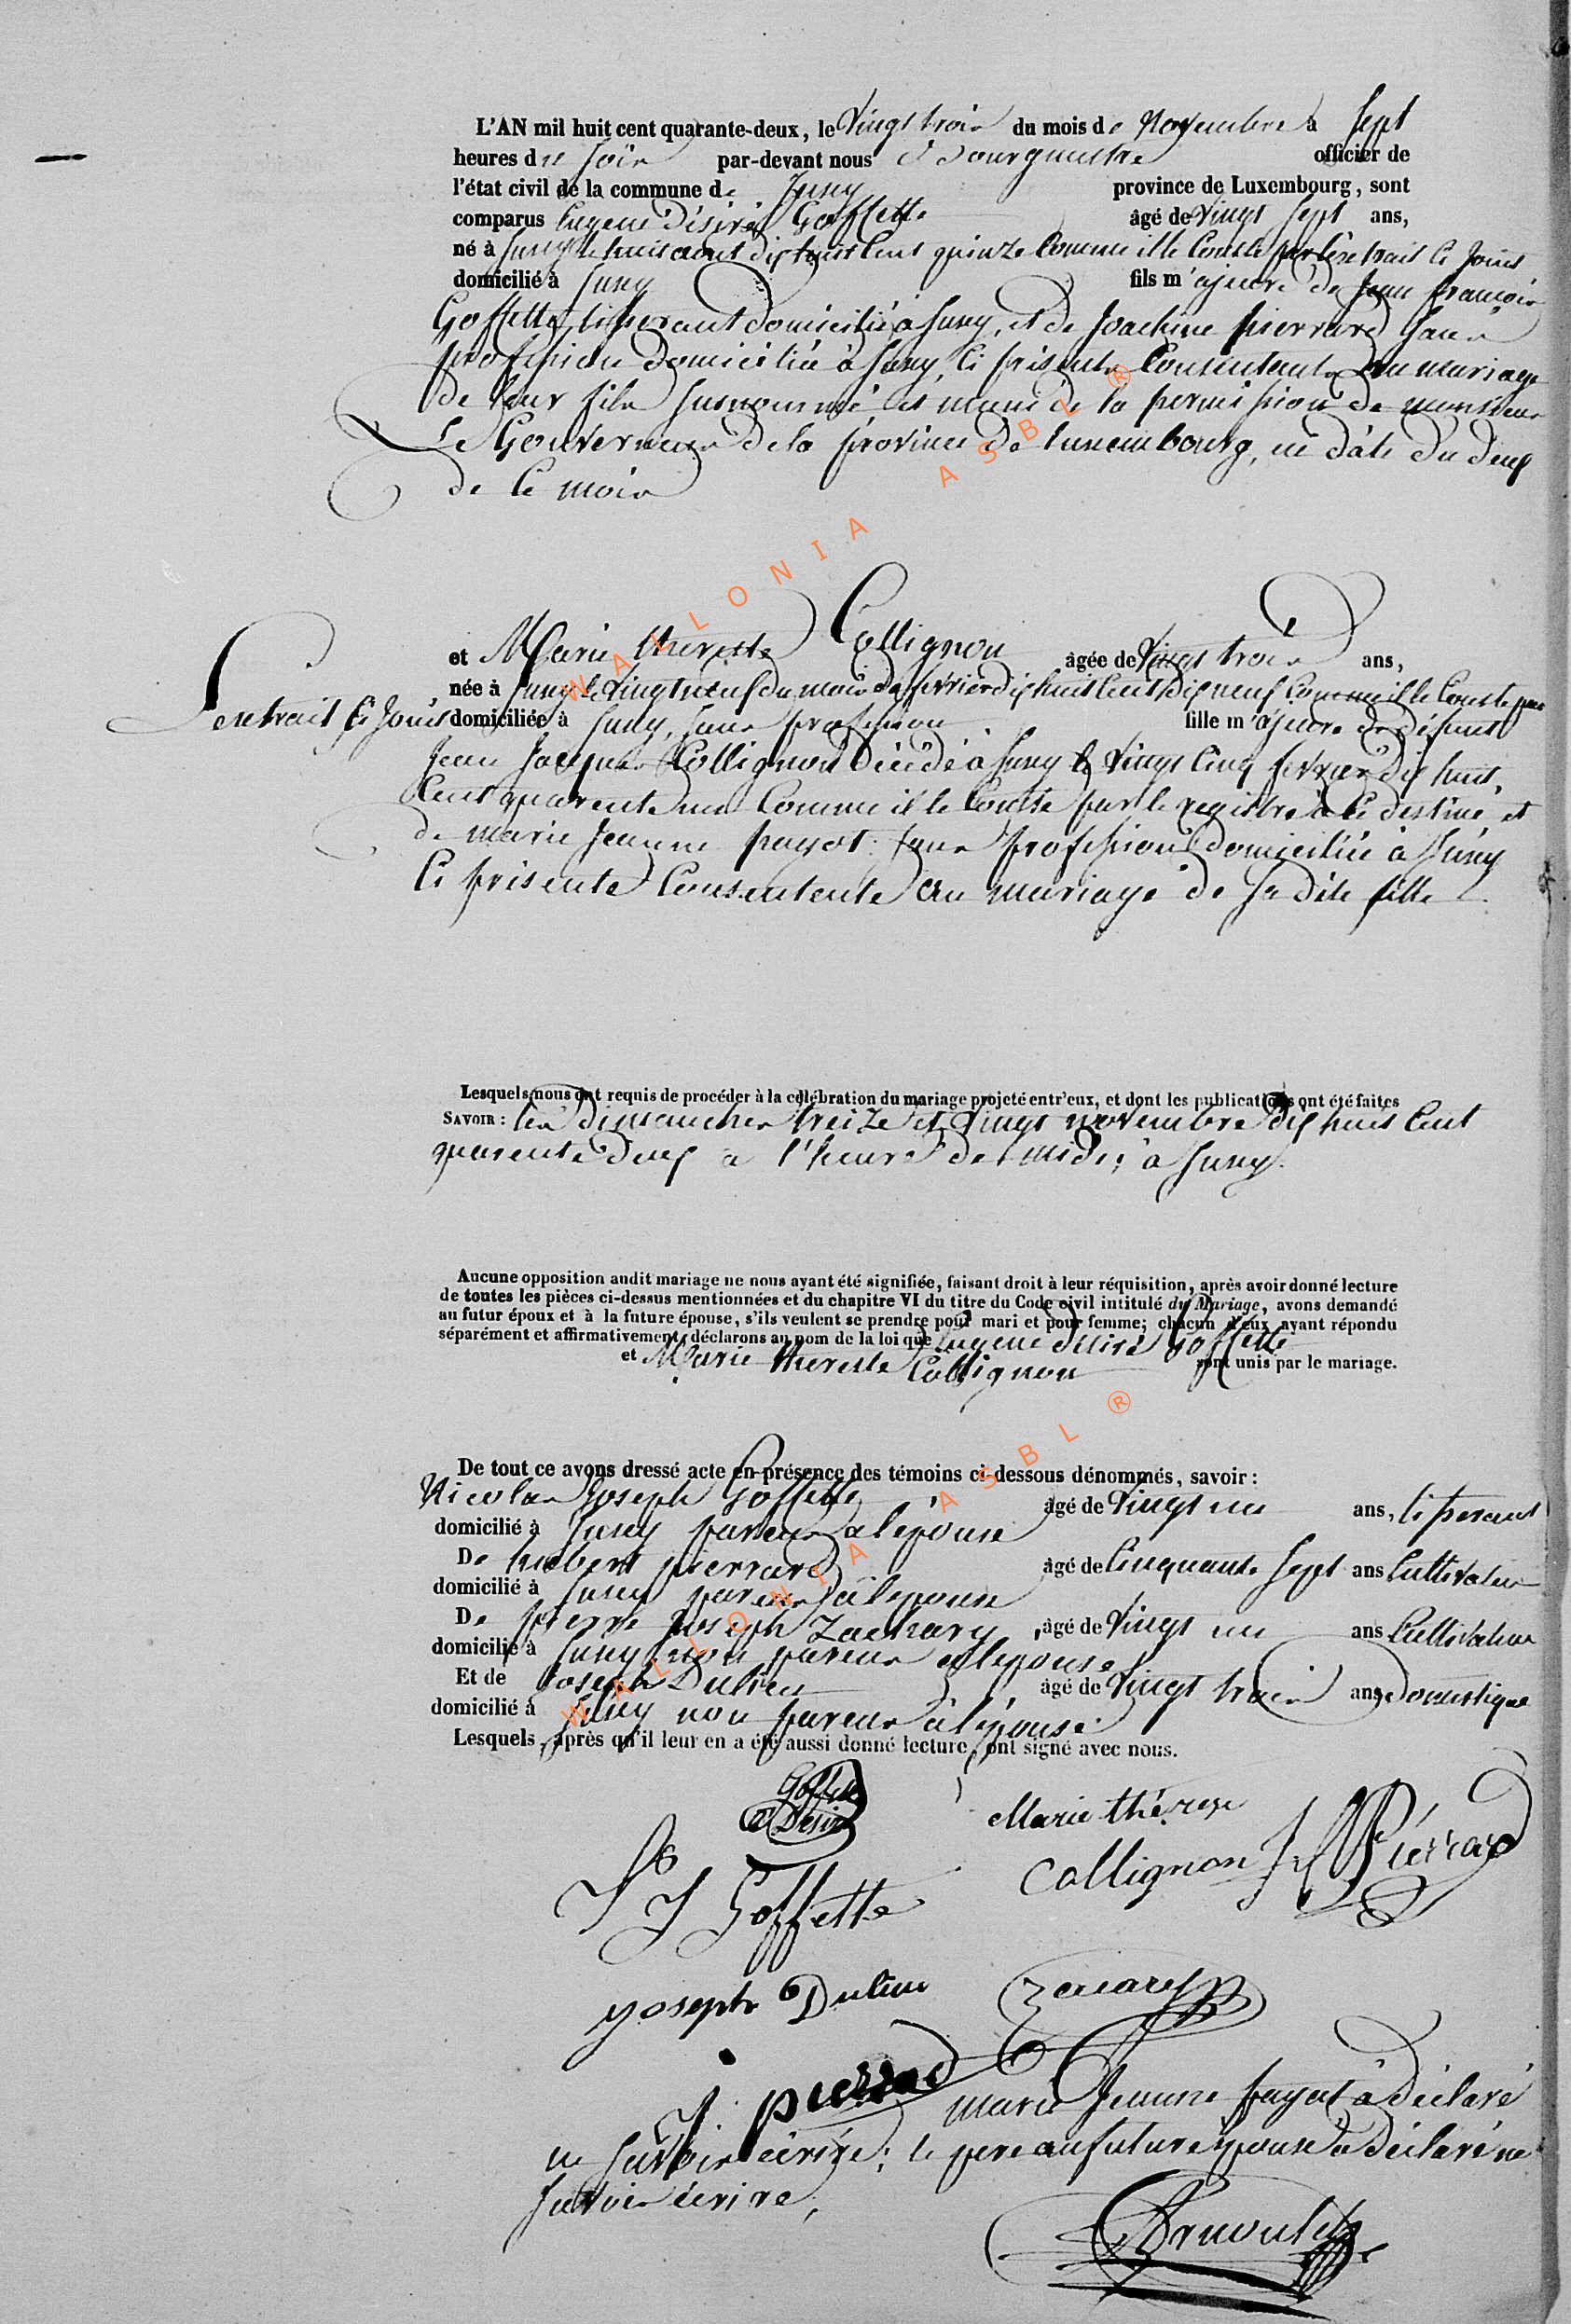 L'AN mil huit cent quarante-deux, le Vingt trois du mois de Novembre à Sept
heures du Soir par-devant nous Bourgmestre officier de
l'état civil de la commune de Suny province de Luxembourg, sont
comparus Eugene Désiré Goffette âgé de Vingt Sept ans,
né à Suny le huit aout dix huit Cent quinze Comme il le Conste par l'extrait Ci Joint
domicilié à Suny fils majeure de Jean françois
Goffette, tisserant domicilié à Suny, et de Joachine pierrard Sans
profession domiciliée à Suny, Ci présents Consentants au mariage
de leur fils susnommé et muni de la permission de monsieur
Le Gouverneur de la province de Luxembourg, en dâte du deux
de Ce mois
et Marie therese Collignon âgée de Vingt trois ans,
née à Suny le Vingt neuf du mois de fevrier dix huit Cent dix neuf Comme il le Conste par
L'extrait Ci Joint domiciliée à Suny, Sans profession fille majeure de défunt
Jean Jacques Collignon décédé à Suny le Vingt Cinq fevrier dix huit
Cent quarente un Comme il le Conste par le registre à Ce destiné et
de marie Jeanne payot Sans profession domiciliée à Suny
Ci présente Consentente au mariage de sa dite fille
Lesquels nous ont requis de procéder à la célébration du mariage projeté entr'eux, et dont les publications ont été faites
SAVOIR : les dimanches treize et Vingt novembre dix huit Cent
quarente deux à l'heure de midi ; à Suny.
Aucune opposition audit mariage ne nous ayant été signifiée, faisant droit à leur réquisition, après avoir donné lecture
de toutes les pièces ci-dessus mentionnées et du chapitre VI du titre du Code civil intitulé du Mariage, avons demandé
au futur époux et à la future épouse, s'ils veulent se prendre pour mari et pour femme; chacun d'eux ayant répondu
séparément et affirmativement, déclarons au nom de la loi que Eugene désiré Goffette
et Marie therese Collignon sont unis par le mariage.
De tout ce avons dressé acte en présence des témoins ci-dessous dénommés, savoir :
Nicolas Joseph Goffette âgé de Vingt un ans, tisserant
domicilié à Suny parens à l'épouse
De hubert pierrard âgé de Cinquante Sept ans Cultivateur
domicilié à Suny parens à l'epouse
De pierre Joseph Zachary, âgé de Vingt un ans Cultivateur
domicilié à Suny non parens à l'epouse
Et de Joseph Dulieu âgé de Vingt trois ans, Domestique
domicilié à Suny non parens à l'épouse
Lesquels, après qu'il leur en a été aussi donné lecture, ont signé avec nous.
Goffette
E Desiré
Marie thérese
Collignon
Pierrard
Goffette
yoseph Dulieu
Zacary
J pierrard
marie Jeanne payot à déclaré
ne Savoir écrire ; le pere au future épouse à déclaré ne
Savoir écrire,
Arnould
WALLONIA ASBL ®
WALLONIA ASBL ®